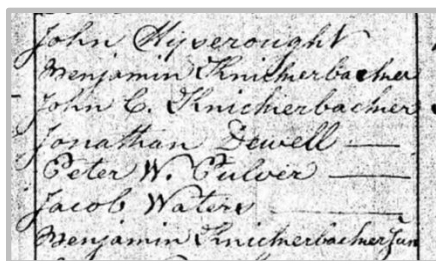 John Hyserought
Benjamin Knickerbacker
John C. Knickerbacker
Jonathan Dewell
Peter W. Pulver
Jacob Waters
Benjamin Knickerbacker Jun